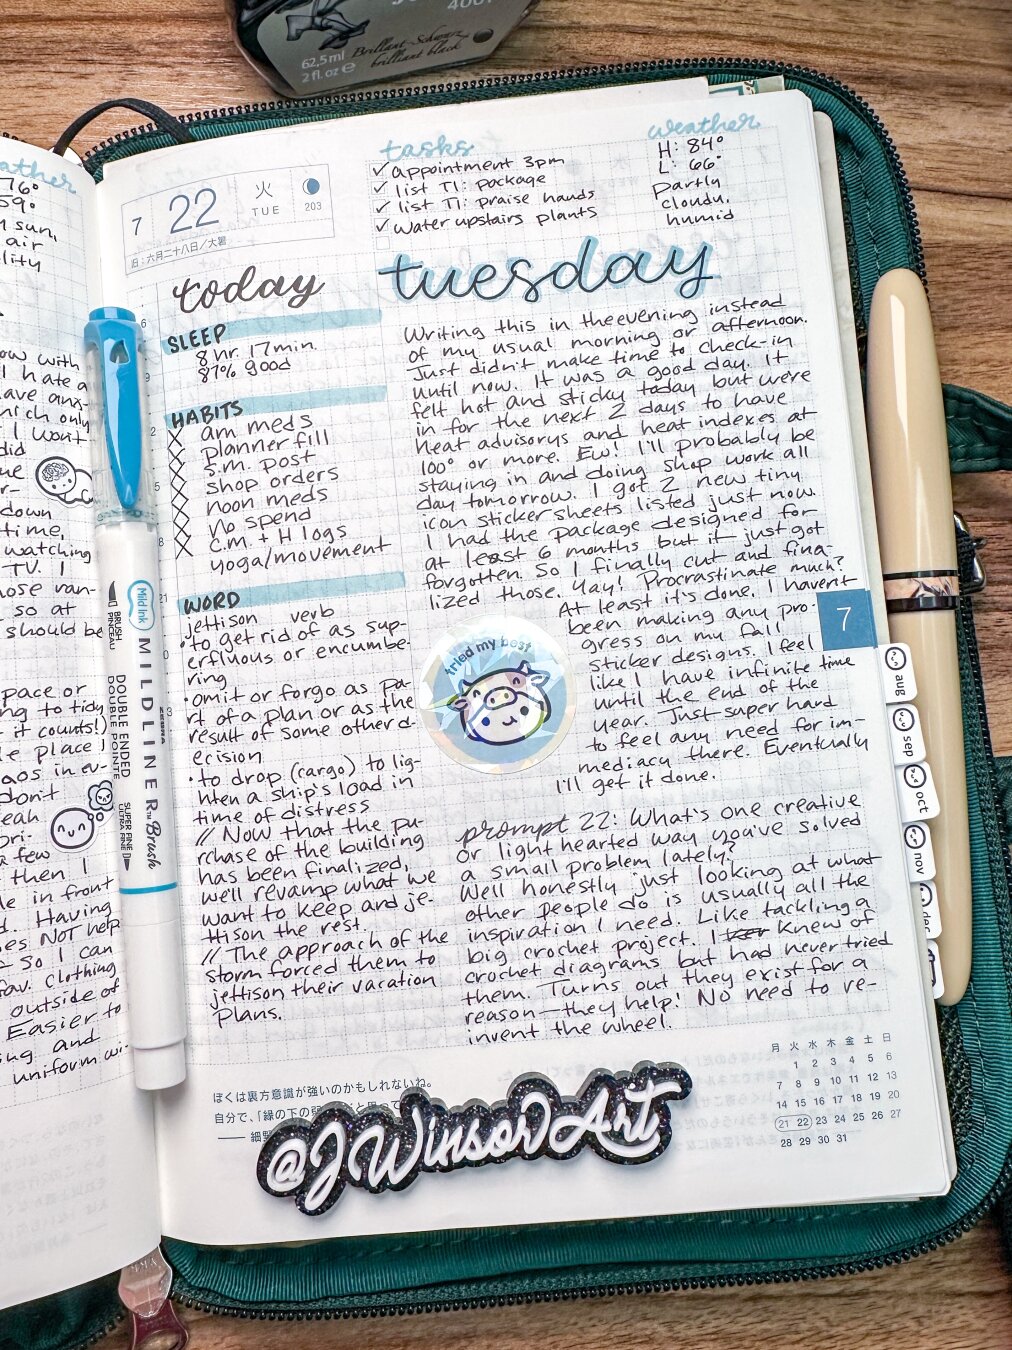 4001
62,5 ml
2 fl. oz e
Brillant-Schwarz
brilliant black
weather
76°
59°
sun,
air
7
22
火
TUE
203
旧：六月二十八日／大暑
tasks
✓ appointment 3pm
✓ list T1: package
✓ list T1: praise hands
✓ water upstairs plants
weather
H: 84°
L: 66°
partly
cloudy,
humid
today
SLEEP
8 hr. 17 min.
87% good
HABITS
am meds
planner fill
s.m. post
shop orders
noon meds
no spend
c.m. + H logs
yoga/movement
WORD
jettison verb
• to get rid of as sup-
erfluous or encumbe-
ring
• omit or forgo as pa-
rt of a plan or as the
result of some other d-
ecision
• to drop (cargo) to lig-
hten a ship's load in
time of distress
// Now that the pu-
rchase of the building
has been finalized,
we'll revamp what we
want to keep and je-
ttison the rest.
// The approach of the
storm forced them to
jettison their vacation
plans.
tuesday
Writing this in the evening instead
of my usual morning or afternoon.
Just didn't make time to check-in
until now. It was a good day. It
felt hot and sticky today but we're
in for the next 2 days to have
heat advisorys and heat indexes at
100° or more. Ew! I'll probably be
staying in and doing shop work all
day tomorrow. I got 2 new tiny
icon sticker sheets listed just now.
I had the package designed for
at least 6 months but it just got
forgotten. So I finally cut and fina-
lized those. Yay! Procrastinate much?
At least it's done. I haven't
been making any pro-
gress on my fall
sticker designs. I feel
like I have infinite time
until the end of the
year. Just super hard
to feel any need for im-
mediacy there. Eventually
I'll get it done.
tried my best
prompt 22: What's one creative
or lighthearted way you've solved
a small problem lately?
Well honestly just looking at what
other people do is usually all the
inspiration I need. Like tackling a
big crochet project. I knew of
crochet diagrams but had never tried
them. Turns out they exist for a
reason—they help! No need to re-
invent the wheel.
7
aug
sep
oct
nov
dec
ow with
I hate a
ave anx-
hich only
I want
did
down
time,
watching
TV. I
ose ran-
so at
should be
pace or
ng to tidy
it counts!)
e place I
aos in ev-
don't
eah
a few
then I
le in front
d. Having
es NOT help
so I can
fav. clothing
outside of
Easier to
ng and
uniform wi-
BRUSH
PINCEAU
Mild Ink
DOUBLE ENDED
DOUBLE POINTE
ZEBRA
MILDLINER™ Brush
SUPER FINE
ULTRA FINE
ぼくは裏方意識が強いのかもしれないね。
自分で、「縁の下の
—— 細
@JWinsorArt
月 火 水 木 金 土 日
1 2 3 4 5 6
7 8 9 10 11 12 13
14 15 16 17 18 19 20
21 22 23 24 25 26 27
28 29 30 31